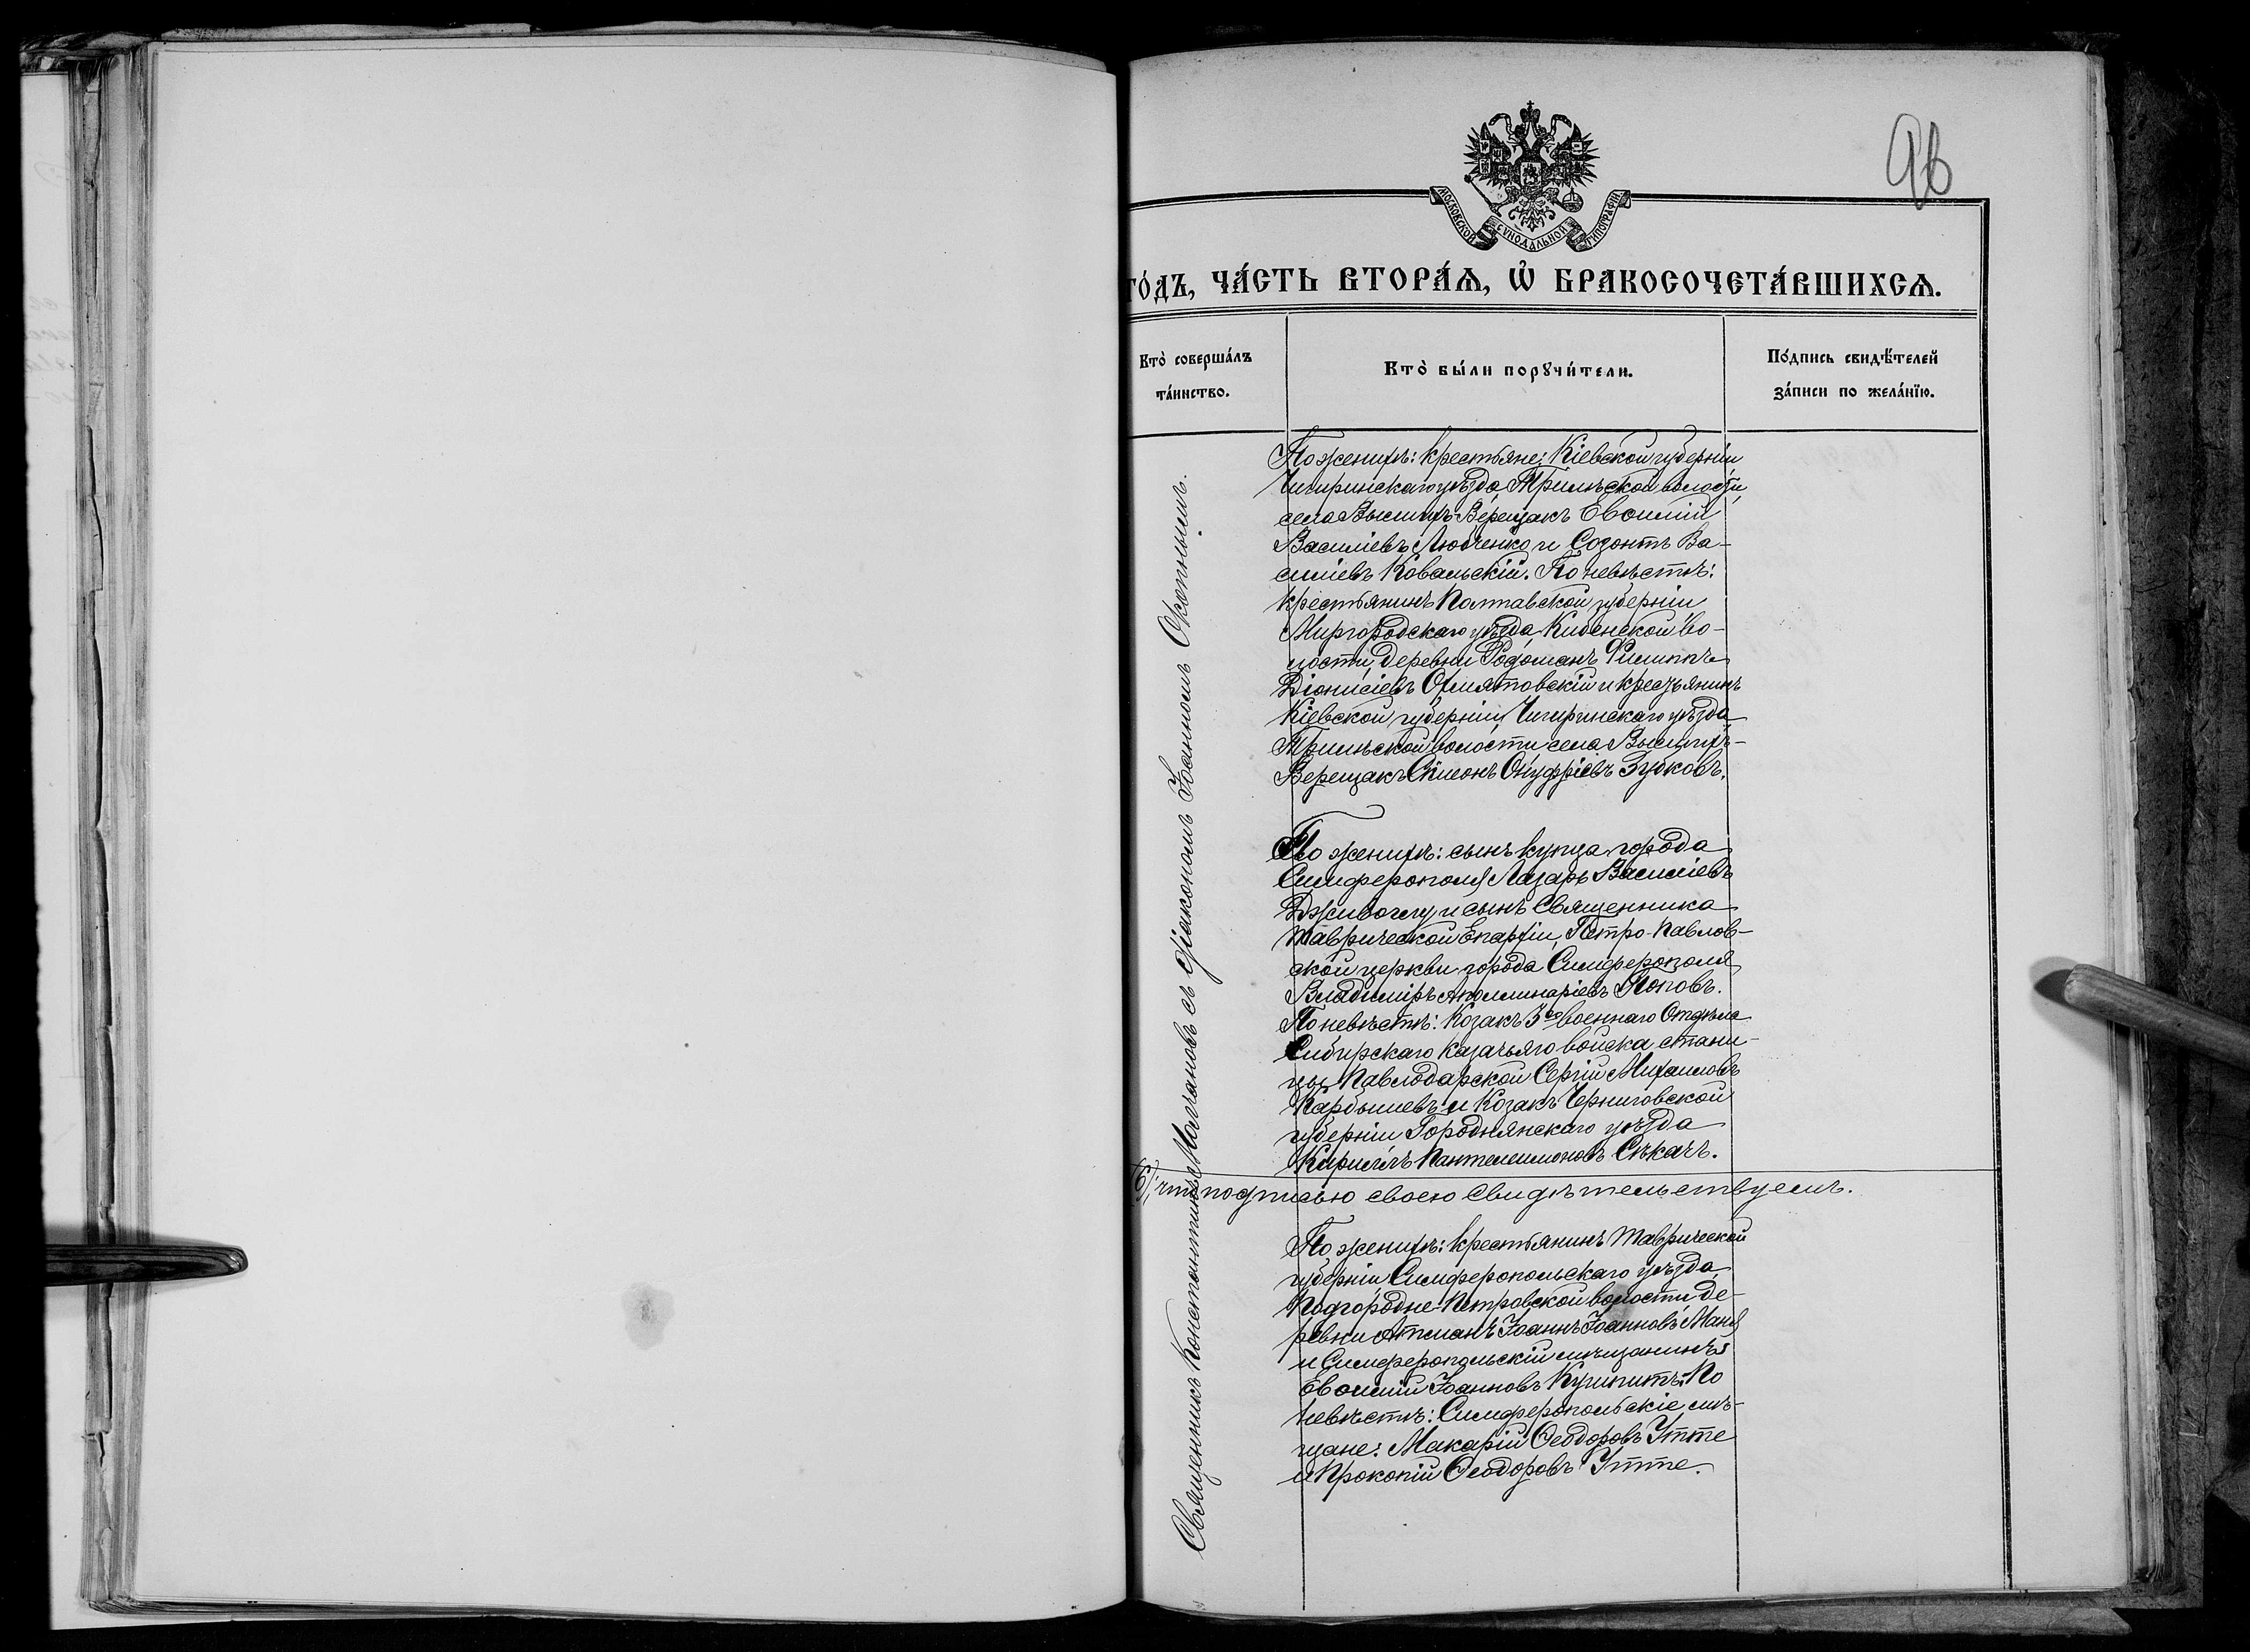 96
МОСКОВСКОЙ СѴНОДАЛЬНОЙ ТИПОГРАФІИ
го́дъ, ча́сть втора́ѧ, ѡ҆ бракосочета́вшихсѧ.
Кто̀ соверша́лъ
та́инство.
Кто̀ бы́ли порꙋчи́тели.
По́дпись свидѣ́телей
за́писи по жела́нїю.
Священникъ Константинъ Молчановъ съ діакономъ Іоанномъ Окопнымъ.
По женихѣ: крестьяне: Кіевской губерніи
Чигиринскаго уѣзда, Трилѣской волости,
села Высшихъ Верещакъ Евѳимій
Василіевъ Любченко и Созонтъ Ва-
силіевъ Ковальскій. По невѣстѣ:
крестьянинъ Полтавской губерніи
Миргородскаго уѣзда, Кибенской во-
лости, деревни Филиппъ
Діонисіевъ и крестьянинъ
Кіевской губерніи, Чигиринскаго уѣзда,
Трилѣской волости села Высшихъ-
Верещакъ Сѵмеонъ Онуфріевъ Зубковъ.
По женихѣ: сынъ купца города
Симферополя Лазарь Василіевъ
Дживоглу и сынъ Священника
Таврической Епархіи, Петро-Павлов-
ской церкви города Симферополя
Владиміръ Аполлинаріевъ Поповъ.
По невѣстѣ: Козакъ 3го военнаго Отдѣла
Сибирскаго казачьяго войска стани-
цы Павлодарской Сергій Михаиловъ
Карбышевъ и Козакъ Черниговской
губерніи Городнянскаго уѣзда
Кириллъ Пантелеимоновъ Сѣкачъ.
(6); что подписью своею Свидѣтельствуемъ.
По женихѣ: крестьянинъ Таврической
губерніи Симферопольскаго уѣзда,
Подгородне-Петровской волости, де-
ревни Атманъ Іоаннъ Іоанновъ
и Симферопольскій мѣщанинъ
Евѳимій Іоанновъ По
невѣстѣ: Симферопольскіе мѣ-
щане: Макарій Ѳеодоровъ Утте
и Прокопій Ѳеодоровъ Утте.